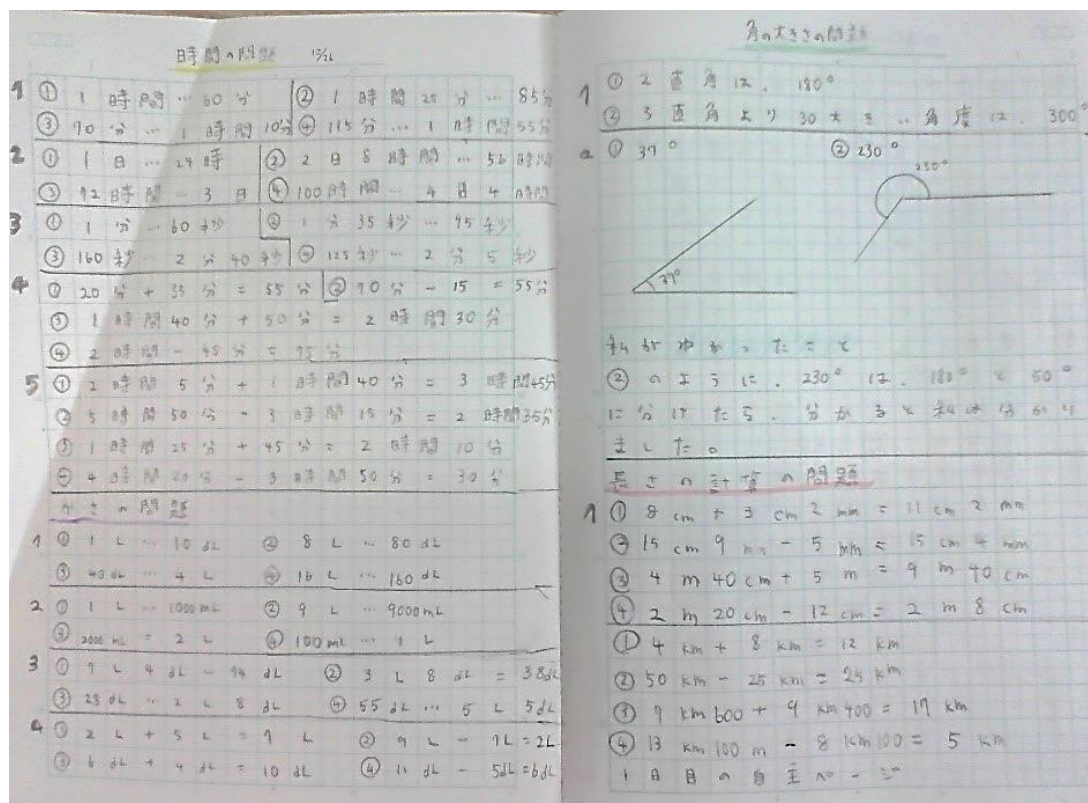 時間の問題 12/26
1 ① 1時間…60分 ② 1時間25分…85分
③ 70分…1時間10分 ④ 115分…1時間55分
2 ① 1日…24時 ② 2日8時間…56時間
③ 72時間…3日 ④ 100時間…4日4時間
3 ① 1分…60秒 ② 1分35秒…95秒
③ 160秒…2分40秒 ④ 125秒…2分5秒
4 ① 20分+35分=55分 ② 70分-15=55分
③ 1時間40分+50分=2時間30分
④ 2時間-45分=75分
5 ① 2時間5分+1時間40分=3時間45分
② 5時間50分-3時間15分=2時間35分
③ 1時間25分+45分=2時間10分
④ 4時間20分-3時間50分=30分
かさの問題
1 ① 1L…10dL ② 8L…80dL
③ 40dL…4L ④ 16L…160dL
2 ① 1L…1000mL ② 9L…9000mL
③ 2000mL=2L ④ 100mL…1L
3 ① 9L4dL-94dL ② 3L8dL=38dL
③ 28dL…2L8dL ④ 55dL…5L5dL
4 ① 2L+5L=7L ② 9L-7L=2L
③ 6dL+4dL=10dL ④ 11dL-5dL=6dL
角の大きさの問題
1 ① 2直角は、180°
② 3直角より30大きい角度は、300°
2 ① 37° ② 230°
230°
37°
私がわかったこと
②のように、230°は、180°と50°
に分けたら、分かると私は分かり
ました。
長さの計算の問題
1 ① 8cm+3cm2mm=11cm2mm
② 15cm9mm-5mm=15cm4mm
③ 4m40cm+5m=9m40cm
④ 2m20cm-12cm=2m8cm
① 4km+8km=12km
② 50km-25km=25km
③ 7km600+9km400=17km
④ 13km100m-8km100=5km
1日目の自主ページ